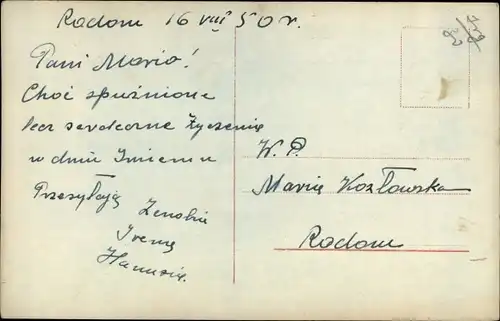 Radom 16 VIII 50 r.
Pani Mario!
Choć spuźnione
lecz serdeczne Życzenia
w dniu Imienin
Przesyłają
Zenobia
Irena
W.P.
Maria Kozłowska
Radom